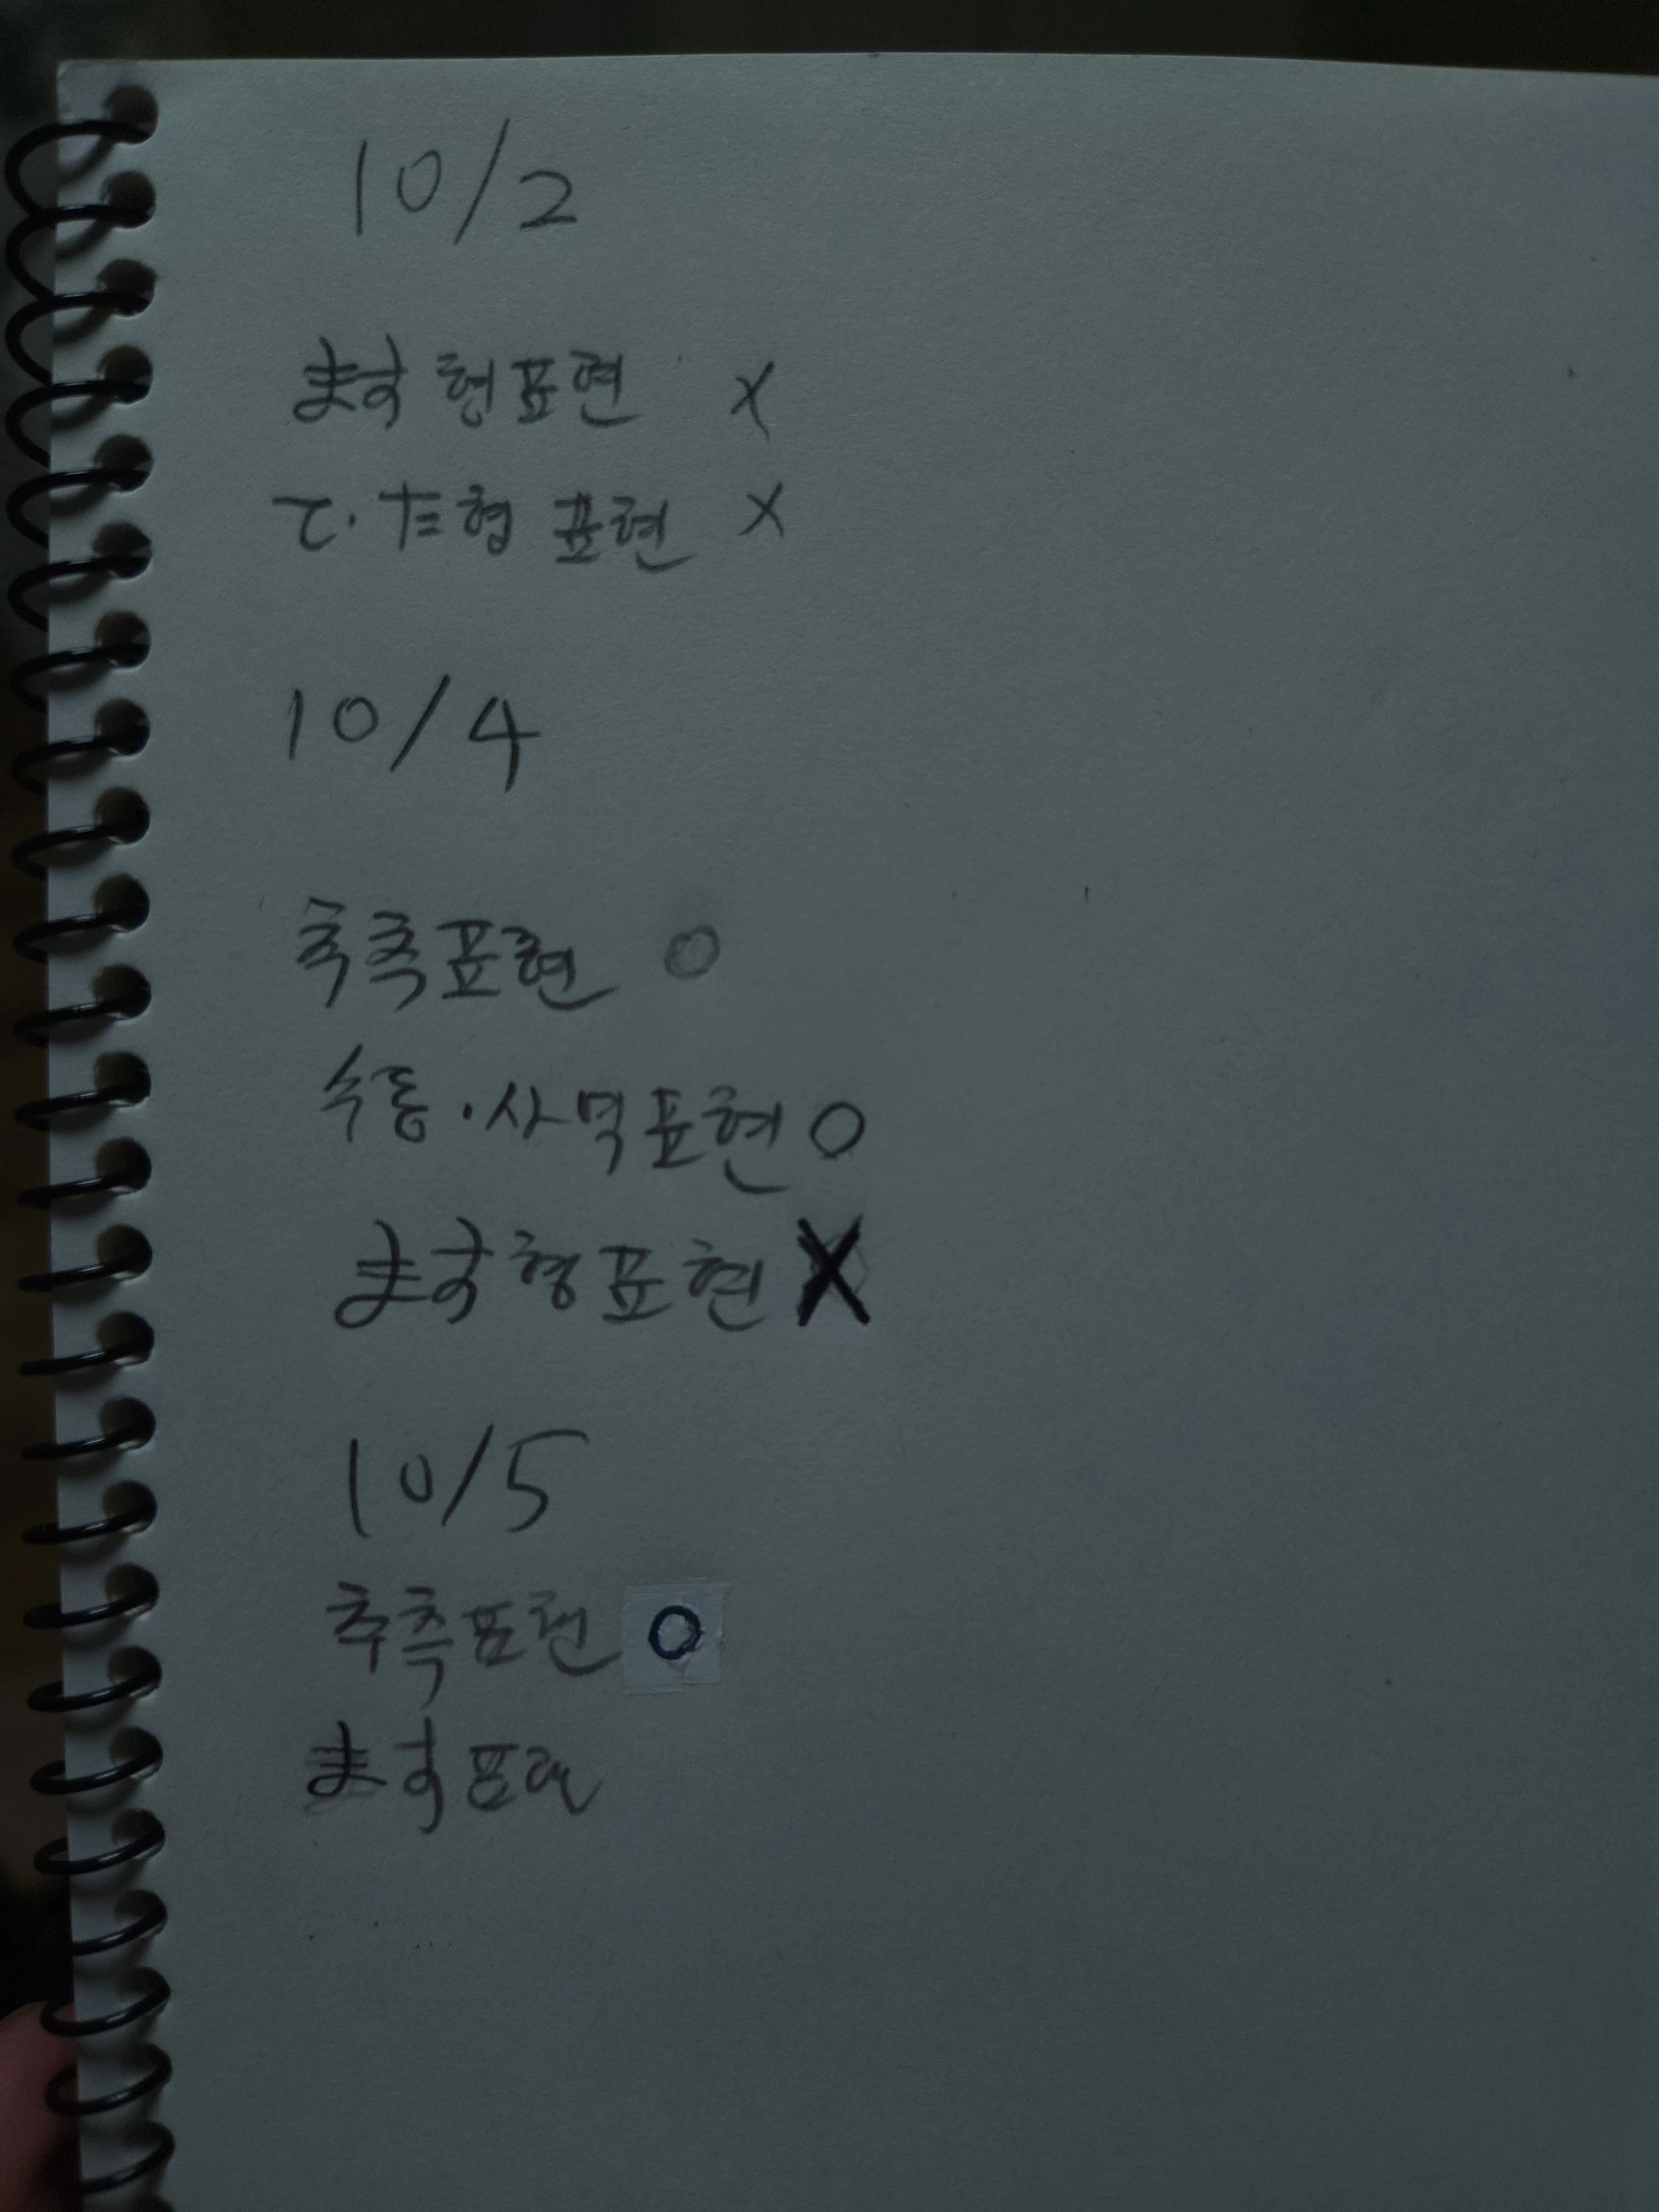 10/2
ます형표현 X
て·た형 표현 X
10/4
추측표현 O
수동·사역표현 O
ます형표현 X
10/5
추측표현 O
ます표현